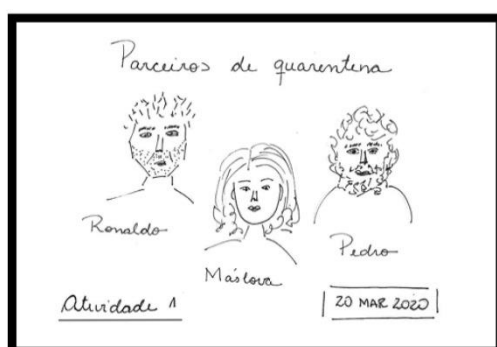 Parceiros de quarentena
Ronaldo
Máslova
Pedro
Atividade 1
20 MAR 2020